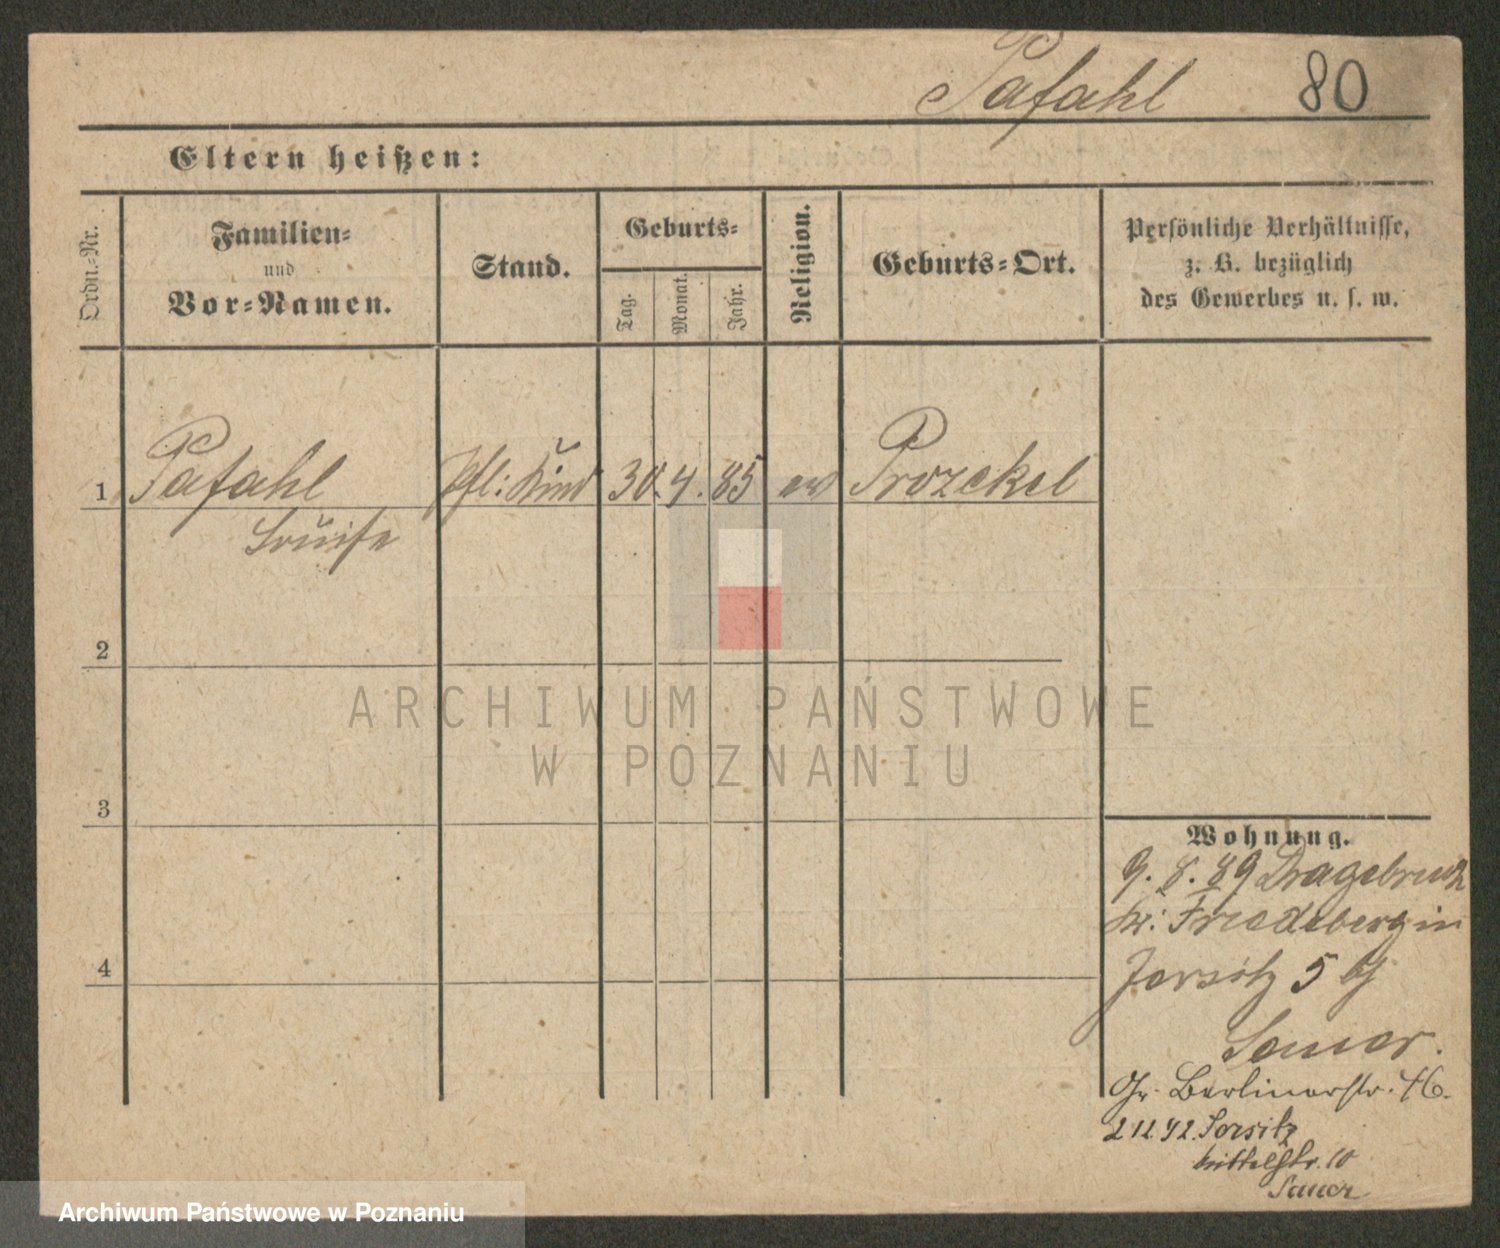 Pafahl 80
Eltern heißen:
Ordn.-Nr.
Familien-
und
Vor-Namen.
Stand.
Geburts-
Tag.
Monat.
Jahr.
Religion.
Geburts-Ort.
Persönliche Verhältnisse,
z. B. bezüglich
des Gewerbes u. s. w.
1 Pafahl Pfl: Kind 30. 4. 85 ev Prozekel
Louise
2
3
4
Wohnung.
9. 8. 89 Dragebruch
Kr: Friedeberg in
Jersitz 5 bj
Sauer.
Gr. Berlinerstr. 46.
Jersitz
Mittelstr. 10
Sauer
ARCHIWUM PAŃSTWOWE
W POZNANIU
Archiwum Państwowe w Poznaniu